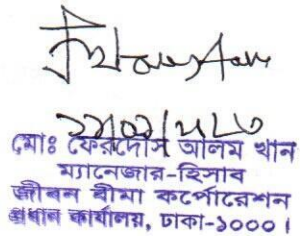 মোঃ ফেরদৌস আলম খান
ম্যানেজার-হিসাব
জীবন বীমা কর্পোরেশন
প্রধান কার্যালয়, ঢাকা-১০০০।